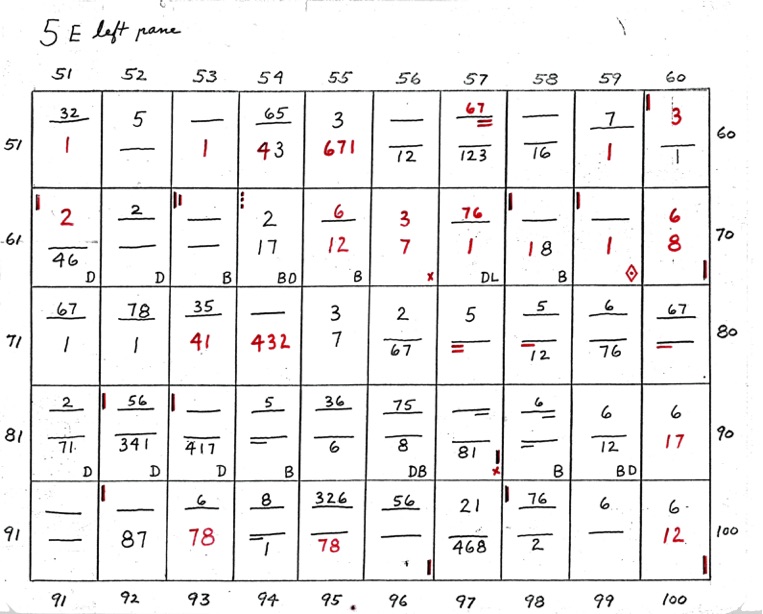 5 E left pane
51 52 53 54 55 56 57 58 59 60
51 32 5 — 65 3 — 67 — 7 3 60
1 — 1 43 671 12 123 16 1 1
61 2 2 — 2 6 3 76 — — 6 70
46 — — 17 12 7 1 18 1 8
D D B BD B x DL B
71 67 78 35 — 3 2 5 5 6 67 80
1 1 41 432 7 67 = 12 76 =
81 2 56 — 5 36 75 = 6 6 6 90
71 341 417 = 6 8 81 = 12 17
D D D B DB x B BD
91 — — 6 8 326 56 21 76 6 6 100
— 87 78 1 78 — 468 2 — 12
91 92 93 94 95. 96 97 98 99 100